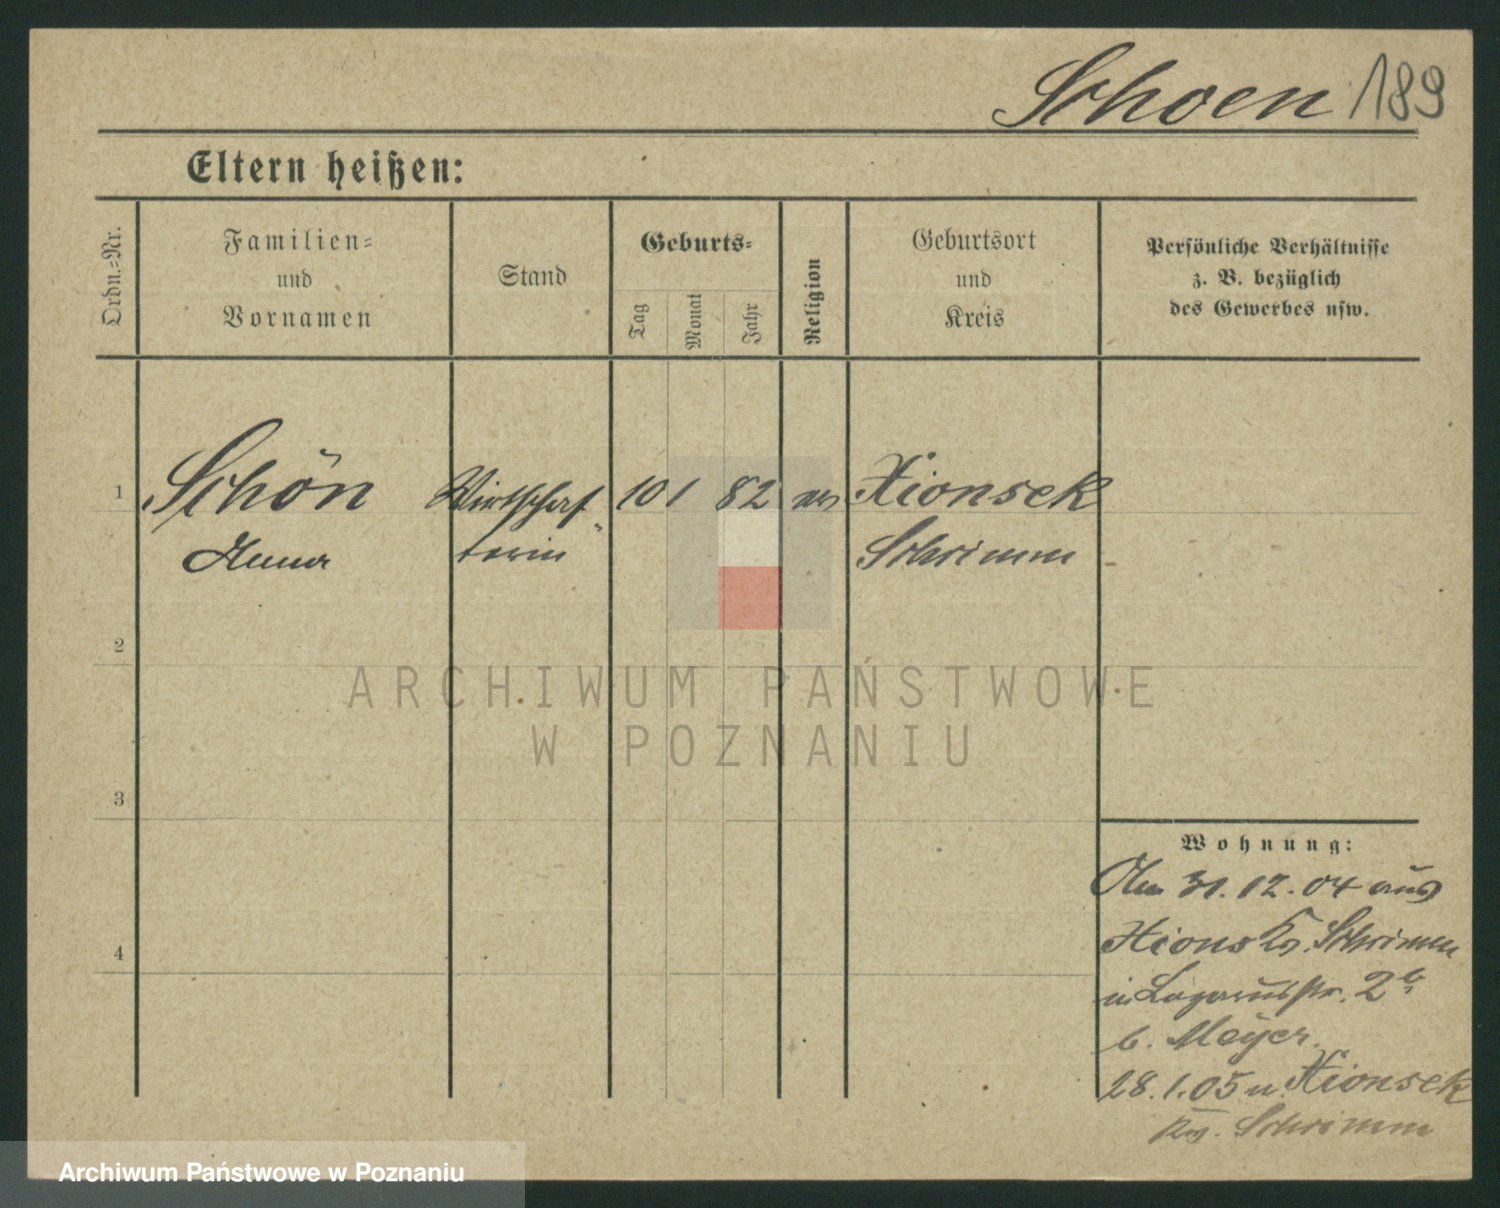 Schoen 189
Eltern heißen:
Ordn.-Nr.
Familien-
und
Vornamen
Stand
Geburts-
Tag
Monat
Jahr
Religion
Geburtsort
und
Kreis
Persönliche Verhältnisse
z. B. bezüglich
des Gewerbes usw.
1
Schön
Anna
Wirtschaf-
terin
10 1 82
Xionsek
Schrimm
2
3
4
ARCHIWUM PAŃSTWOWE
W POZNANIU
Wohnung:
Am 31.12.04 aus
Xions Kr. Schrimm
in Lazarusstr. 2
b. Meyer.
28.1.05 n. Xionsek
Kr. Schrimm
Archiwum Państwowe w Poznaniu